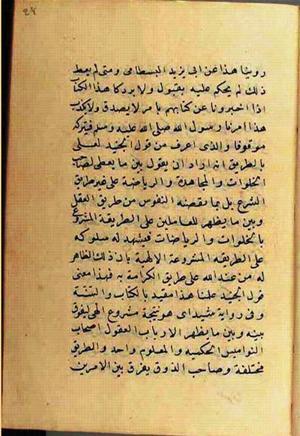 روينا هذا عن ابى يزيد البسطامى ومتى لم يعط
ذلك لم يحكم عليه بقبول ولا بردكما هذا الكتاب
اذا اخبرونا عن كتابهم بامر لا يصدق ولا يكذب
هذا امرنا رسول الله صلى الله عليه وسلم فيتركه
موقوفا والذى اعرف من قول الجنيد لعلمى
بالطريق انه اراد ان يفرق بين ما يعطى لصاحب
الخلوات والمجاهدة والرياضة على غير طريق
الشرع بل بما تقتضيه النفوس من طريق العقل
وبين ما يظهر للعاملين على الطريقة المشروعة
بالخلوات والرياضات فيشهد له سلوكه
على الطريقة المشروعة الالهية بان ذلك الظاهر
له من عند الله على طريق الكرامة به فهذا معنى
قول الجنيد علمنا هذا مقيد بالكتاب والسنة
وفى رواية مشيد اى هو نتيجة مشروع الهى ليفرق
بينه وبين ما يظهر لارباب العقول اصحاب
النواميس الحكمية والمعلوم واحد والطريق
مختلفة وصاحب الذوق يفرق بين الامرين